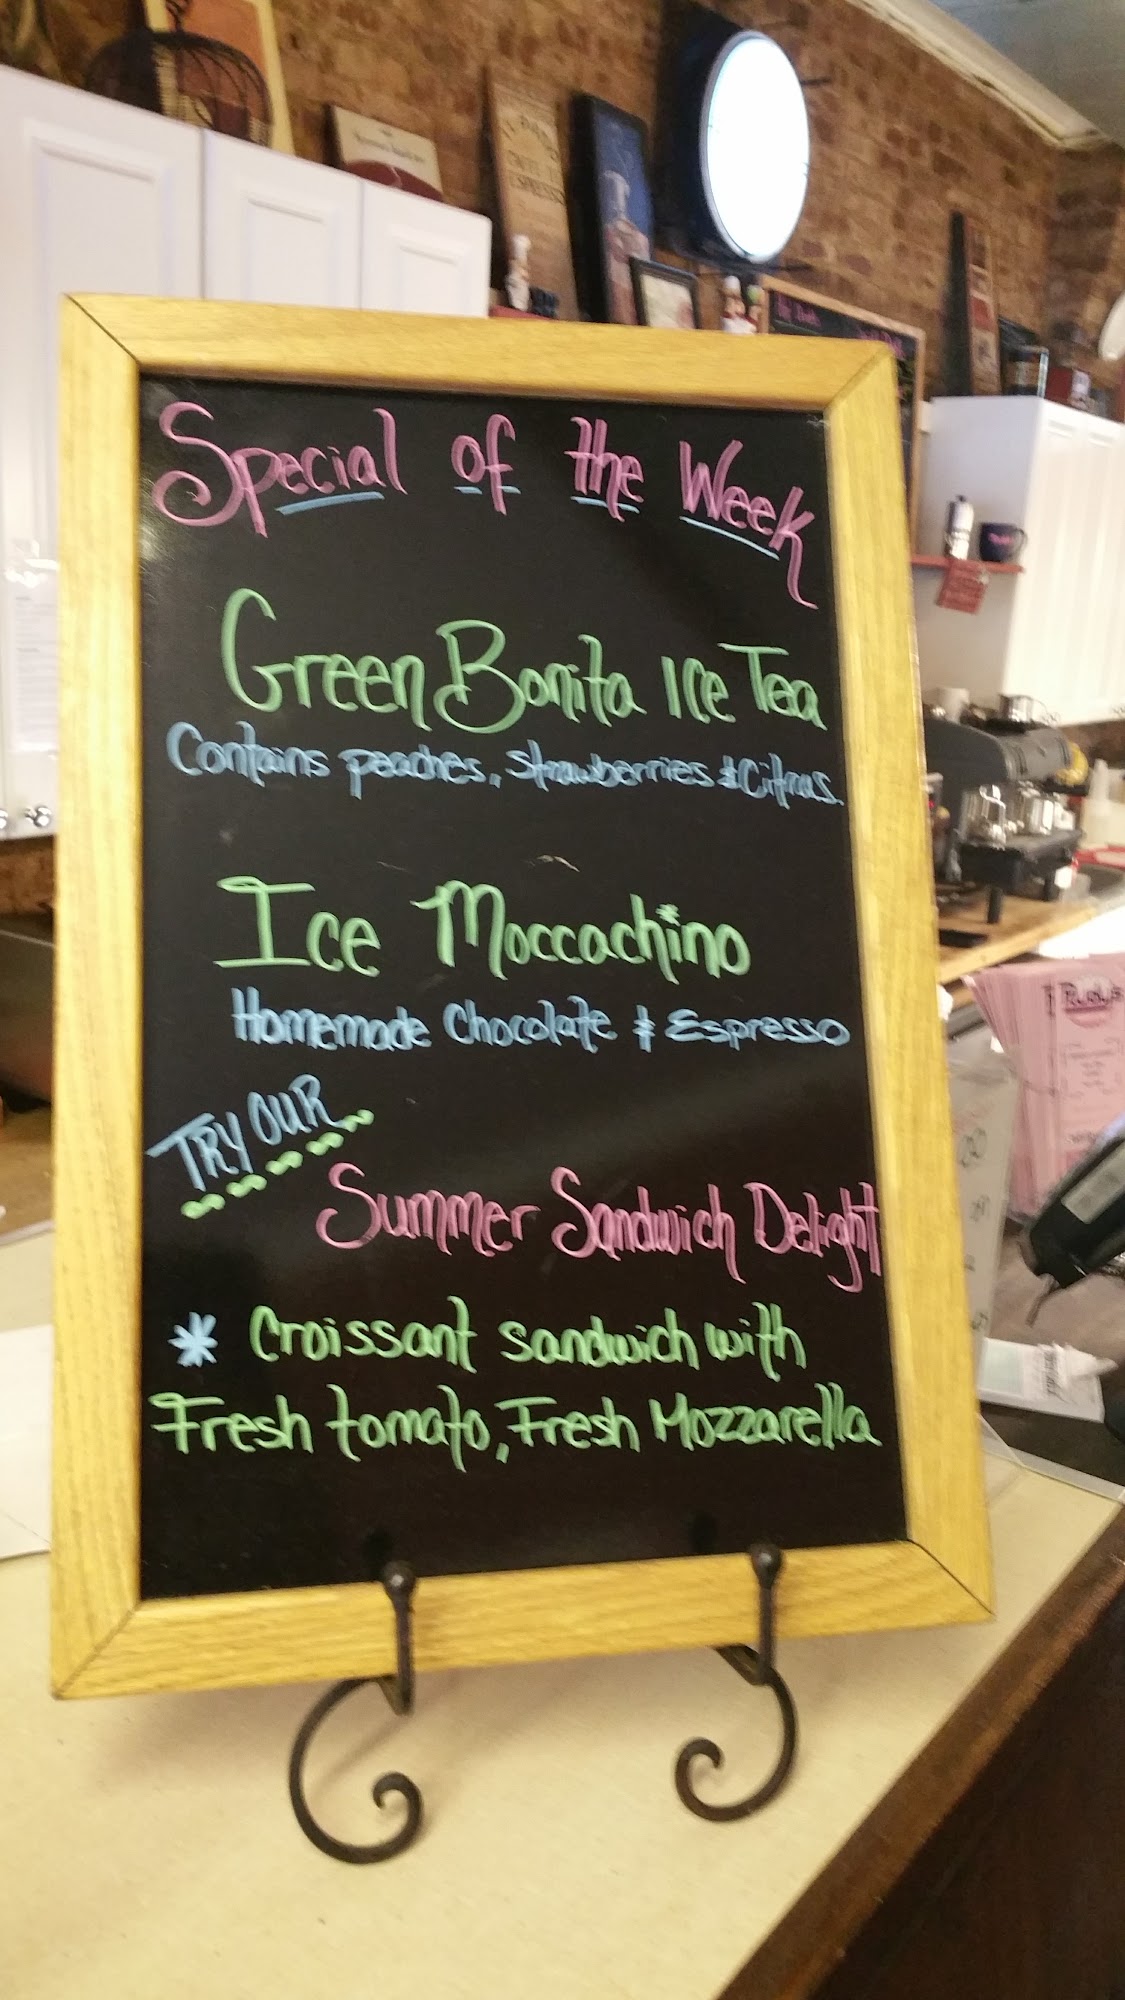 Special of the Week
Green Bonita Ice Tea
Contains peaches, strawberries & Citrus.
Ice Moccachino
Homemade Chocolate & Espresso
TRY OUR
Summer Sandwich Delight
* Croissant sandwich with
Fresh tomato, Fresh Mozzarella
Rudy's